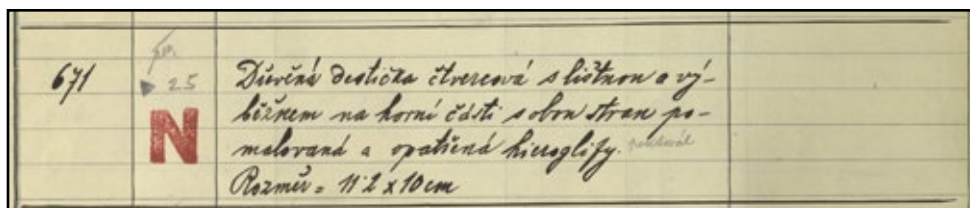 671
25
N
Dřevěná destička čtvercová s lištnou a vý-
běžkem na horní části s obou stran po-
malovaná a opatřená hieroglify. pektorál
Rozměr = 11·2 x 10 cm